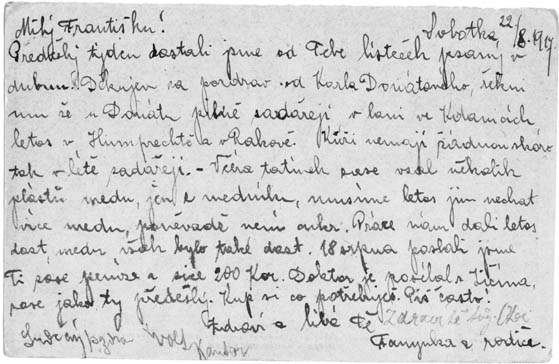 Milý Františku! Sobotka 22/8. 1917
Předešlý týden dostali jsme od Tebe lísteček psaný v
dubnu. Děkujem za pozdrav od Karla Donátového, řekni
mu že u Donátů pilně sadařejí v lani ve Kdanicích
letos v Humprechtě a v Rakově. Kluři nemají žádnou škodu
tak v létě sadařejí. - Včera tatínek zase vzal několik
plástů medu, jen z medníku, musíme letos jim nechat
více medu, poněvadž není cukr. Práce nám dali letos
dost, medu však bylo také dost. 18 srpna poslali jsme
Ti zase peníze a sice 200 Kor. Doktor je posílal z Jičína,
zase jako ty předešlý. Kup si co potřebuješ. Piš často!
Zdraví a líbá Tě
Srdečný pozdra Wolf
Fanynka a rodiče.